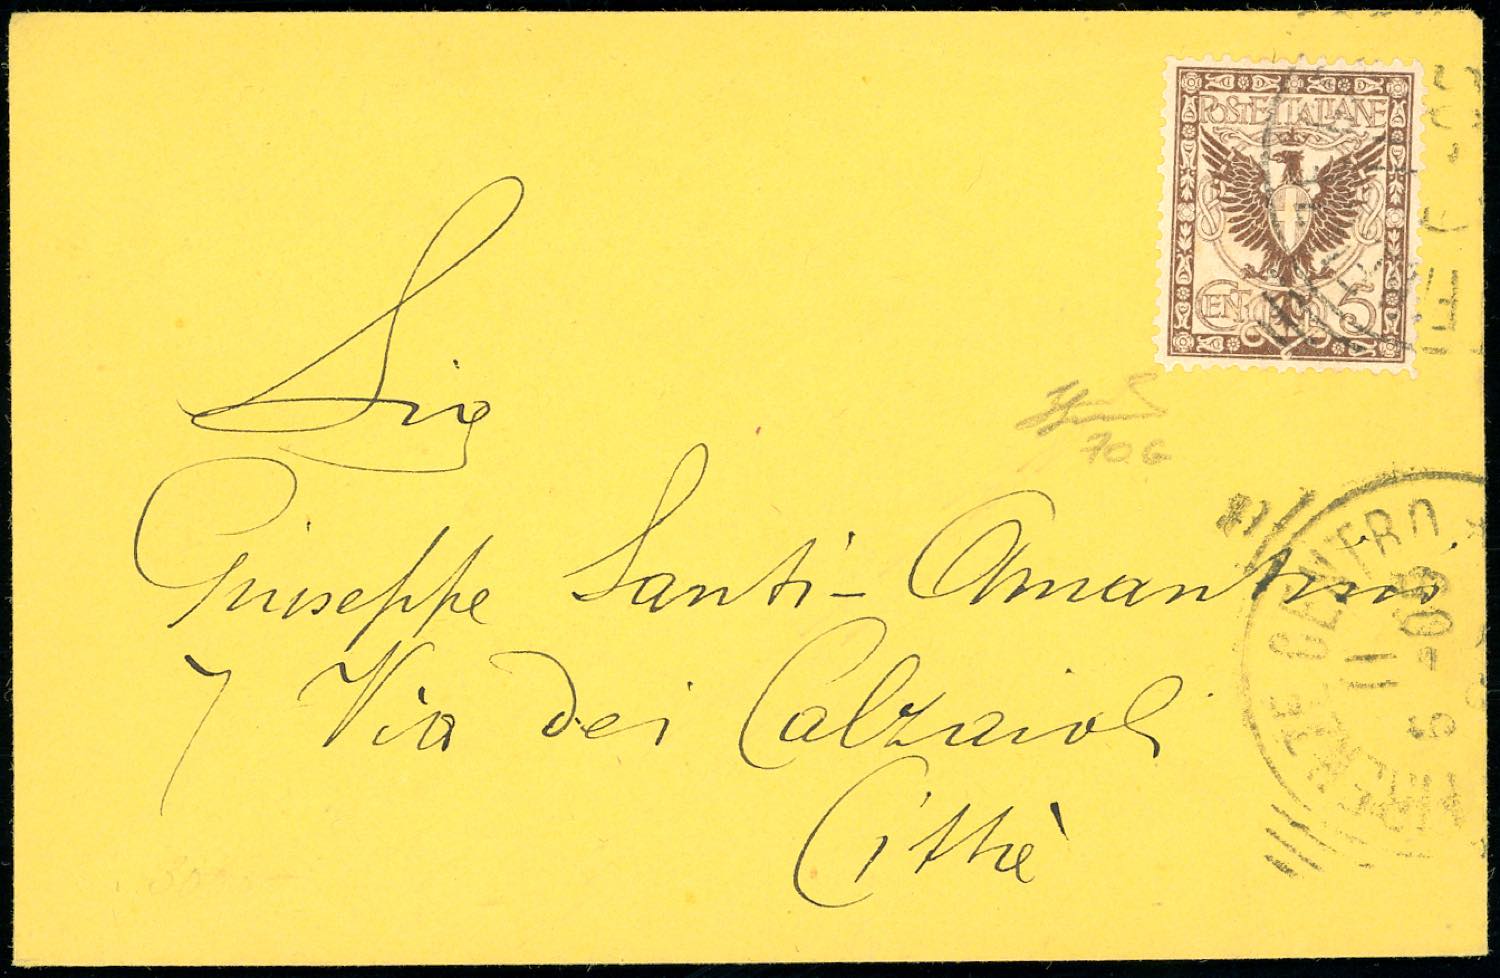 POSTE ITALIANE
CENT 5
70.G
Sig
Giuseppe Santi-Amantini
7 Via dei Calzaioli
Città
FIRENZE CENTRO *
11